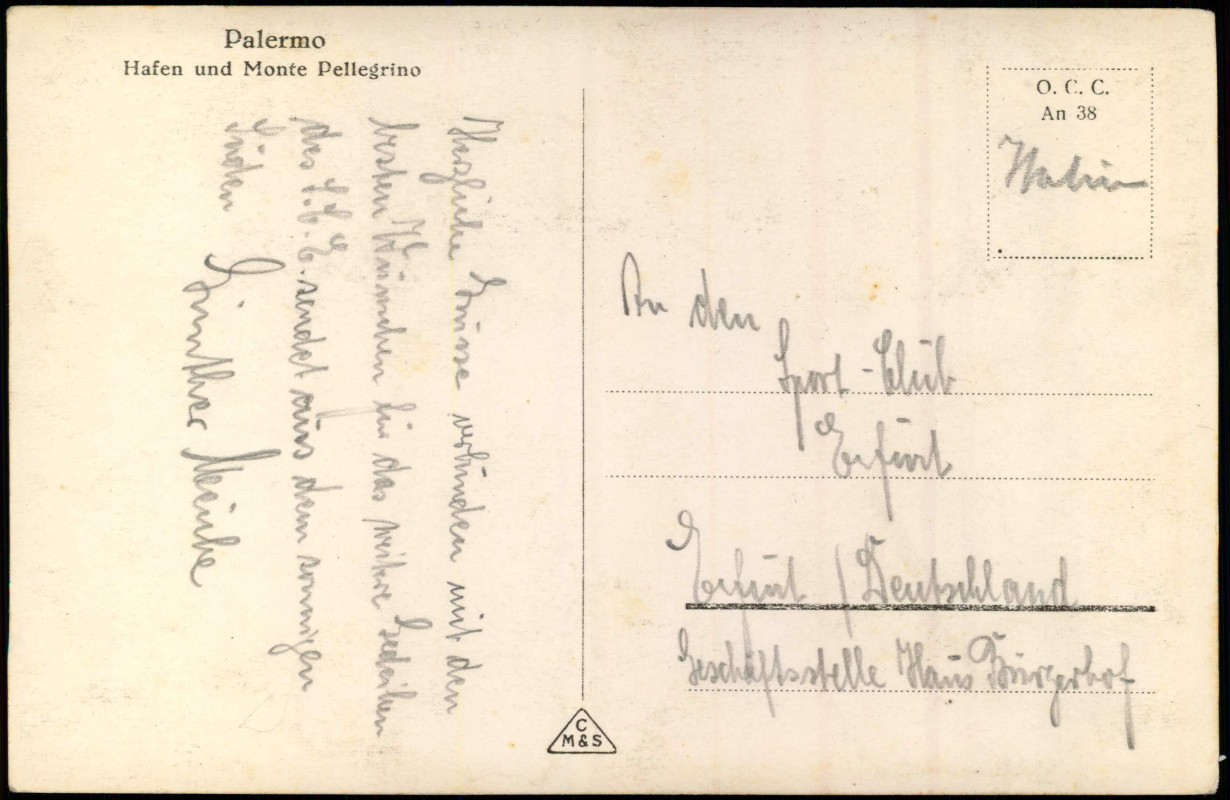 Palermo
Hafen und Monte Pellegrino
Herzliche Grüsse verbunden mit den
besten Wünschen für das weitere Gedeihen
des S.C.E. sendet aus dem sonnigen
Süden
Günther Meinke
O. C. C.
An 38
An den
Sport-Club
Erfurt
Erfurt / Deutschland
Geschäftsstelle Haus Bürgerhof
C
M&S